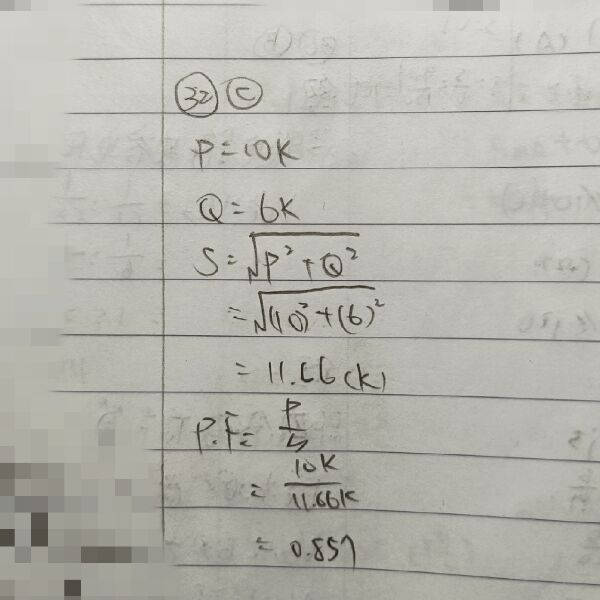 32 C
P=10K
Q=6K
S=√P²+Q²
=√(10)²+(6)²
=11.66(K)
P.F=P/S
=10K/11.66K
=0.857